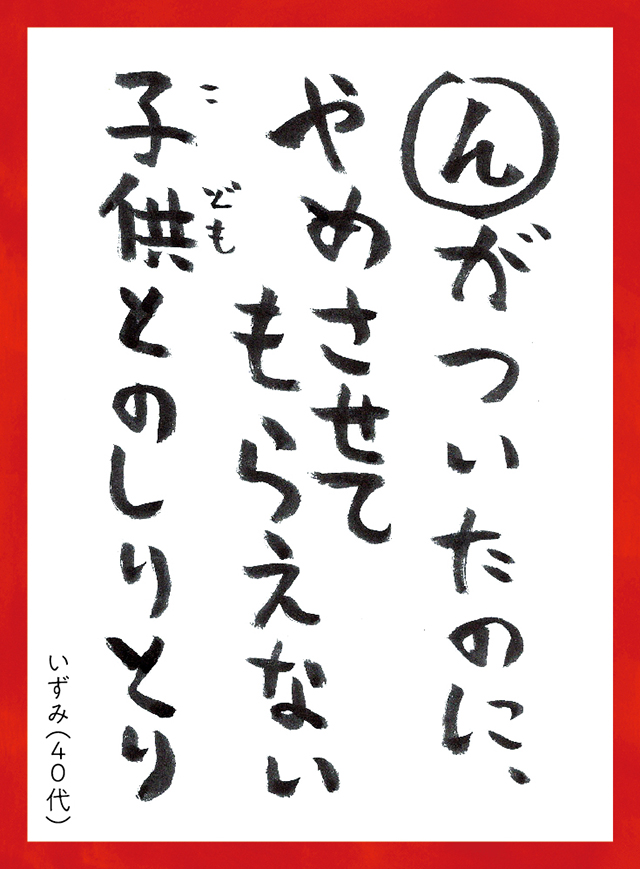 んがついたのに、
やめさせて
もらえない
子供とのしりとり
こども
いずみ(40代)